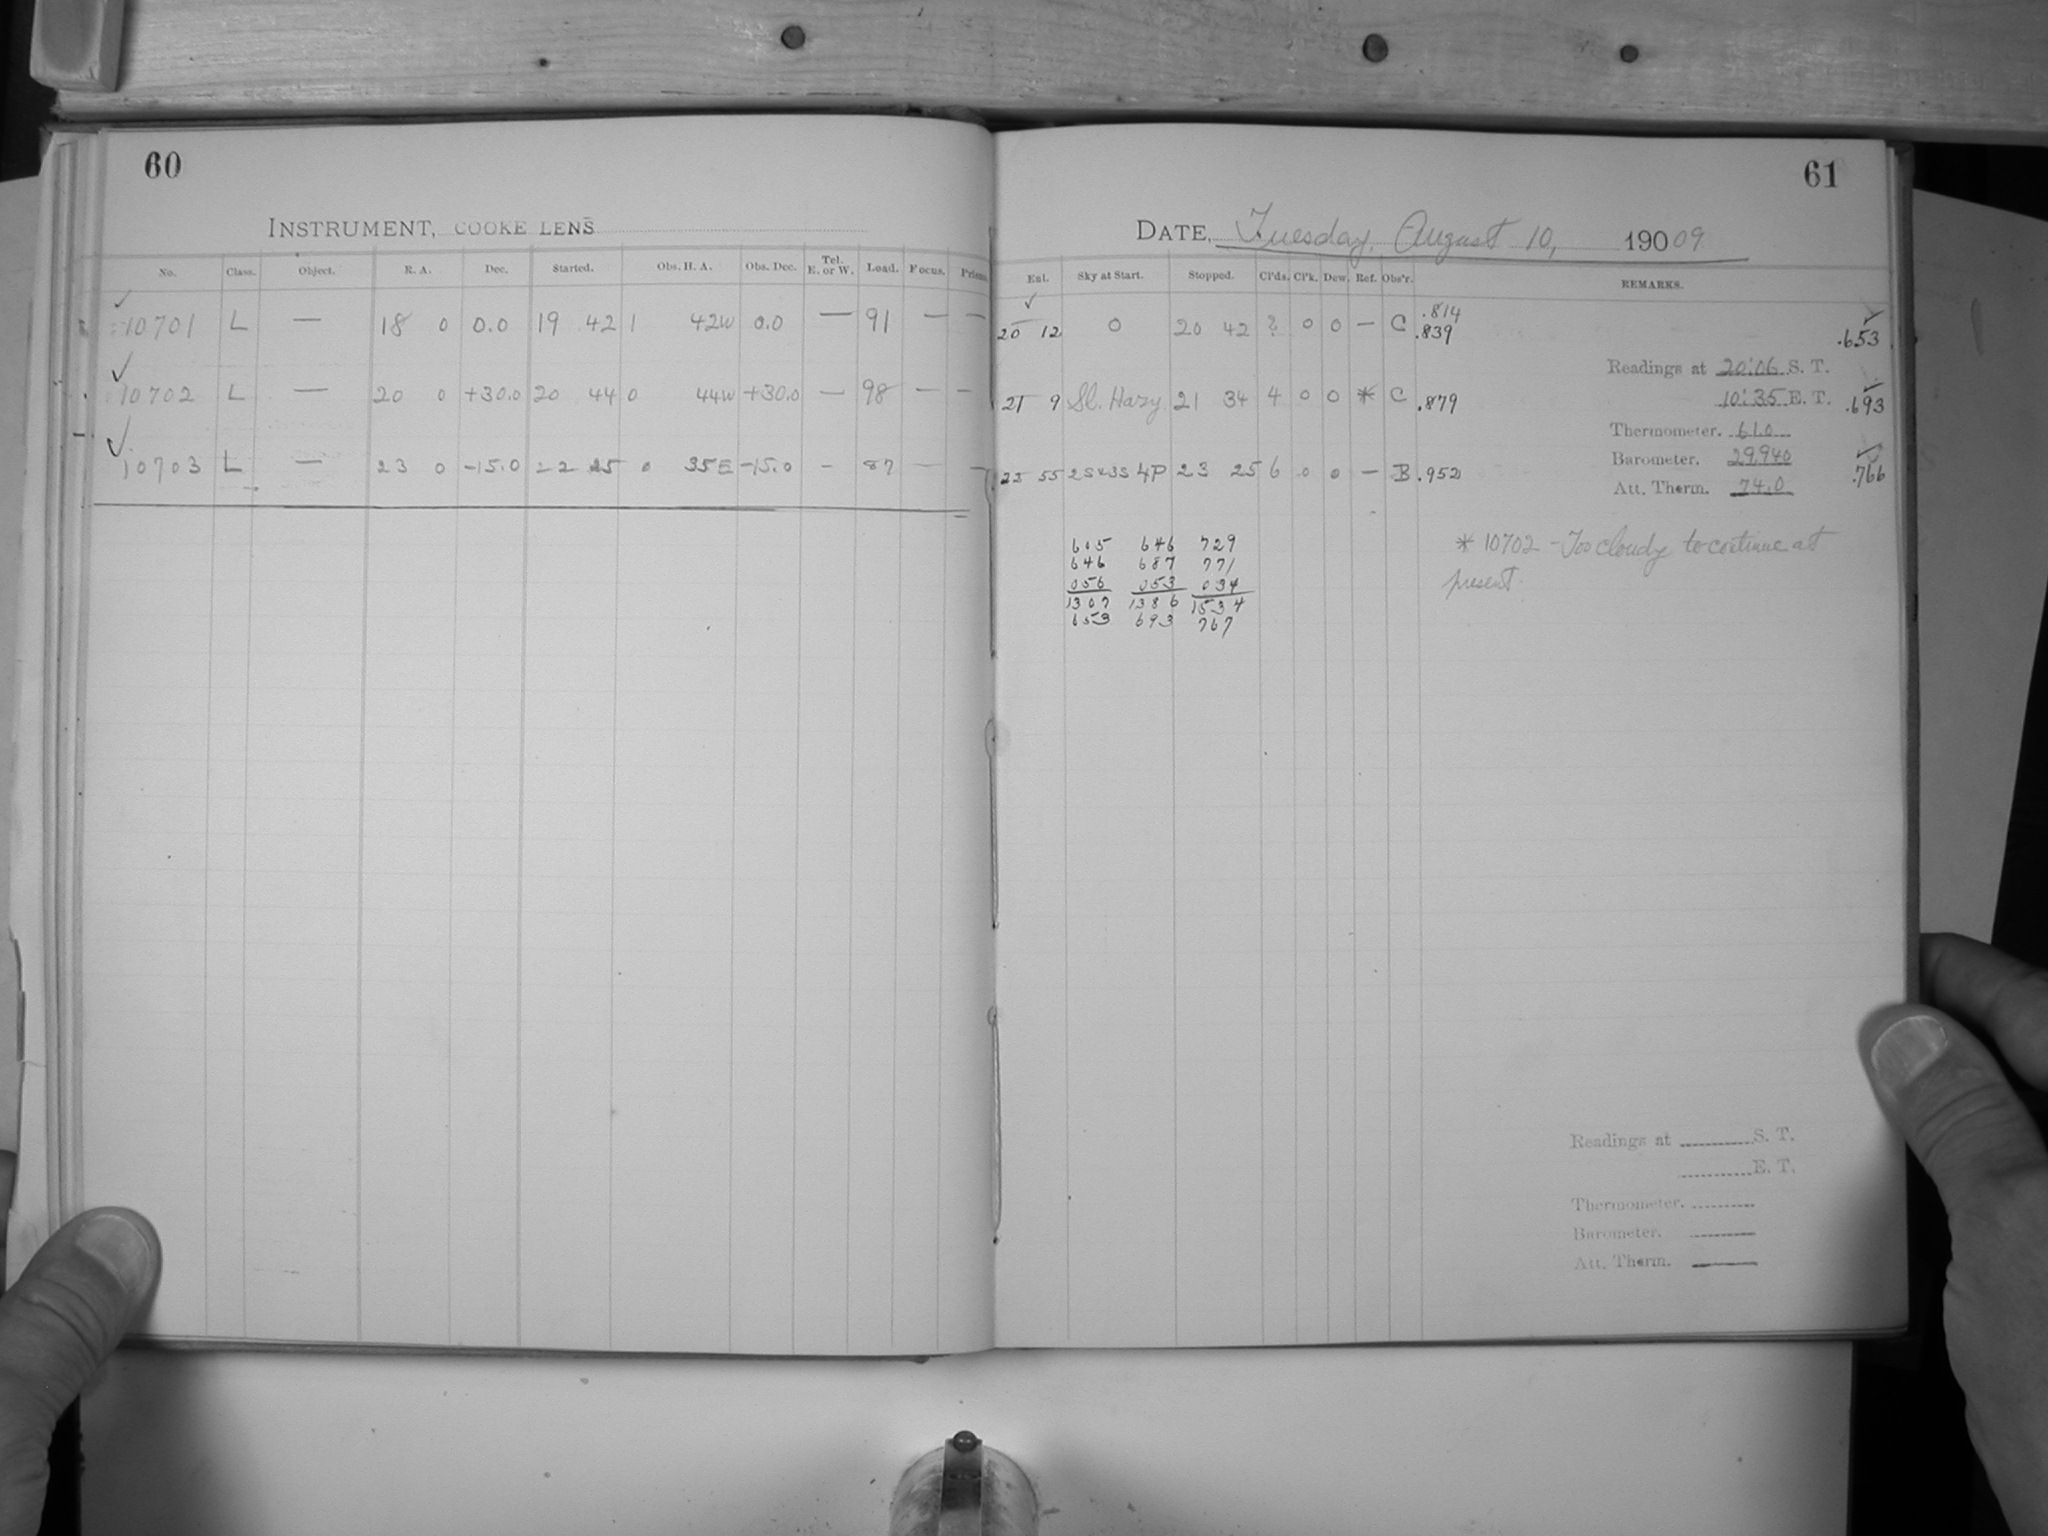 60
INSTRUMENT, COOKE LENS
No. Class. Object. R. A. Dec. Started. Obs. H. A. Obs. Dec. Tel. E. or W. Load. Focus. Prism.
✓ 10701 L — 18 0 0.0 19 42 1 42W 0.0 — 91 — —
✓ 10702 L — 20 0 +30.0 20 44 0 44W +30.0 — 98 — —
✓ 10703 L — 23 0 -15.0 22 25 0 35E -15.0 - 87 — —
61
DATE, Tuesday, August 10, 190 09
Eat. Sky at Start. Stopped. Cl'ds. Cl'k. Dew. Ref. Obs'r. REMARKS.
✓ 20 12 0 20 42 ? 0 0 — C .814
.839 .653
Readings at 20:06 S. T.
21 9 Sl. Hazy 21 34 4 0 0 * C .879 10:35 E. T. .693
Thermometer. 61.0
Barometer. 29.940
22 55 2S 4P 23 25 6 0 0 — B .952 .766
Att. Therm. 74.0
605 646 729
646 687 771
056 053 034
1307 1386 1534
653 693 767
* 10702 - Too cloudy to continue at
present.
Readings at S. T.
E. T.
Thermometer.
Barometer.
Att. Therm.